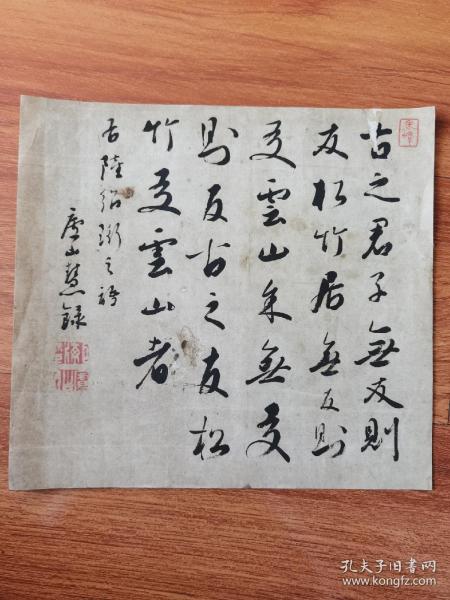 古之君子無友則
友松竹居無友則
友雲山余無友
則友古之友松
竹友雲山者
右陸紹珩之語
山慧録
孔夫子旧书网
www.kongfz.com